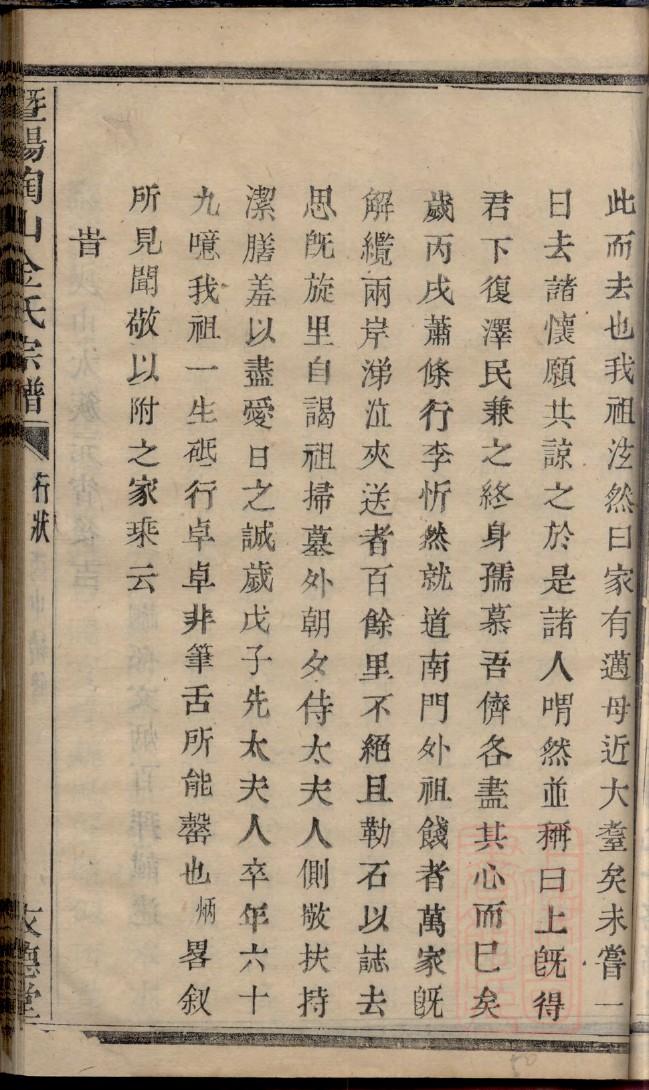 此而去也我祖泫然曰家有邁母近大耋矣未嘗一
日去諸懷願共諒之於是諸人喟然並稱曰上旣得
君下復澤民兼之終身孺慕吾儕各盡其心而已矣
歲丙戌蕭條行李忻然就道南門外祖餞者萬家旣
解纜兩岸涕泣夾送者百餘里不絕且勒石以誌去
思旣旋里自謁祖掃墓外朝夕侍太夫人側敬扶持
潔膳羞以盡愛日之誠歲戊子先太夫人卒年六十
九噫我祖一生砥行卓卓非筆舌所能罄也炳畧叙
所見聞敬以附之家乘云
旹
暨陽陶山金氏宗譜
行狀
文德堂